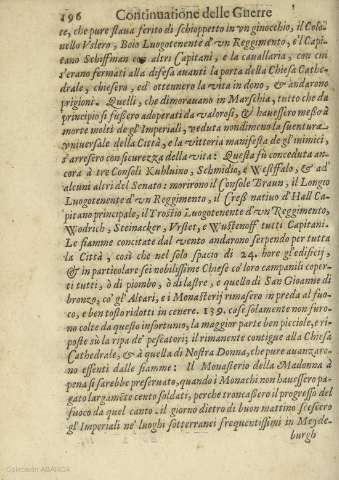 196 Continuatione delle Guerre
te, che pure staua ferito di schioppetto in vn ginocchio, il Colo-
nello Vslero, Boio Luogotenente d'vn Reggimento, e'l Capi-
tano Schiffman con altri Capitani, e la canallaria, con chi
s'erano fermati alla difesa auanti la porta della Chiesa Cathe-
drale, chiesero, ed ottennero la vita in dono, & andarono
prigioni. Quelli, che dimorauano in Marschia, tutto che da
principio si fussero adoperati da valorosi, & hauessero messo à
morte molti de gl'Imperiali, veduta nondimeno la suentura
vniuersale della Città, e la vittoria manifesta de gl'inimici,
s'arresero con sicurezza della vita: Questa fù conceduta an-
cora à tre Consoli Kuhluino, Schmidio, e Westffalo, & ad'
alcuni altri del Senato: morirono il Console Braun, il Longio
Luogotenente d'vn Reggimento, il Cress natiuo d'Hall Ca-
pitano principale, il Trostio Luogotenente d'vn Reggimento,
Wodrich, Steinacker, Vrslet, e Wustenoff tutti Capitani.
Le fiamme concitate dal vento andarono serpendo per tutta
la Città, così che nel solo spacio di 24. hore gl'edificij,
& in particolare sei nobilissime Chiese co' loro campanili coper-
ti tutti, ò di piombo, ò di lastre, e quello di San Gioanne di
bronzo, co' gl'Altari, e i Monasterij rimasero in preda al fuo-
co, e ben tosto ridotti in cenere. 139. case solamente non furo-
no colte da questo infortunio, la maggior parte ben picciole, e ri-
poste sù la ripa de' pescatori; il rimanente contigue alla Chiesa
Cathedrale, & à quella di Nostra Donna, che pure auanzaro-
no essenti dalle fiamme: Il Monasterio della Madonna à
pena si sarebbe preseruato, quando i Monachi non hauessero pa-
gato largamēte cento soldati, perche troncassero il progresso del
fuoco da quel canto. il giorno dietro di buon mattino scesero
gl'Imperiali ne' luoghi sotterranei frequentissimi in Meyde-
burgh
Colección ABANCA